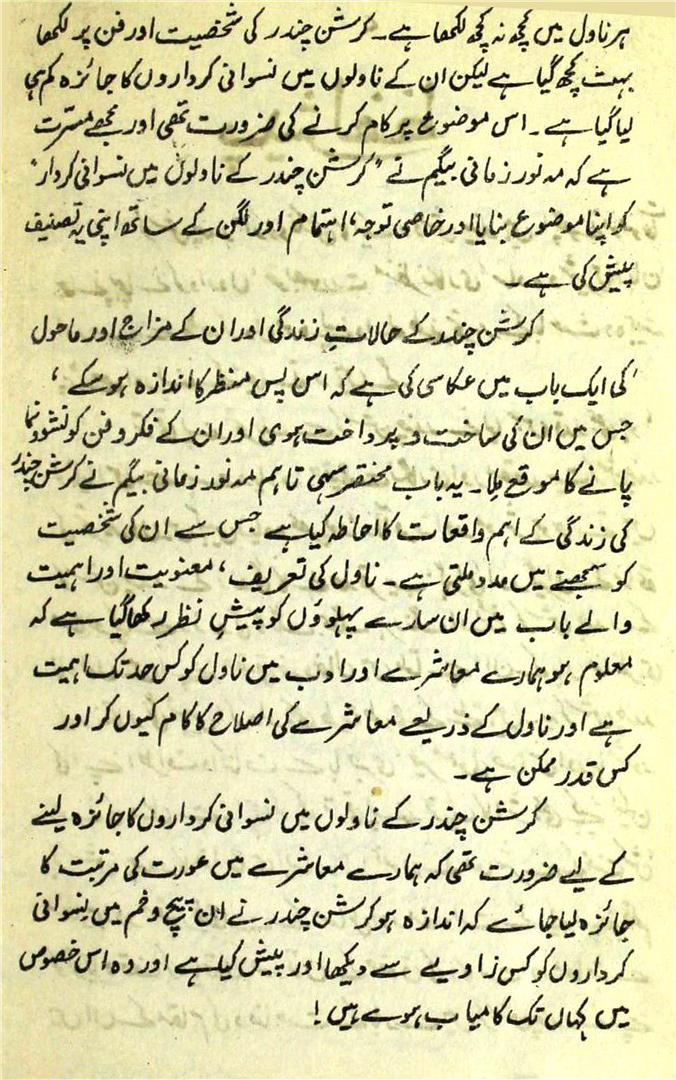 ہر ناول میں کچھ نہ کچھ لکھا ہے۔ کرشن چندر کی شخصیت اور فن پر لکھا
بہت کچھ گیا ہے لیکن ان کے ناولوں میں نسوانی کرداروں کا جائزہ کم ہی
لیا گیا ہے۔ اس موضوع پر کام کرنے کی ضرورت تھی اور مجھے مسرت
ہے کہ مہ نور زمانی بیگم نے "کرشن چندر کے ناولوں میں نسوانی کردار"
کو اپنا موضوع بنایا اور خاصی توجہ، اہتمام اور لگن کے ساتھ اپنی یہ تصنیف
پیش کی ہے۔
کرشن چندر کے حالاتِ زندگی اور ان کے مزاج اور ماحول
کی ایک باب میں عکاسی کی ہے کہ اس پس منظر کا اندازہ ہو سکے،
جس میں ان کی ساخت و پرداخت ہوی اور ان کے فکر و فن کو نشوونما
پانے کا موقع ملا۔ یہ باب مختصر سہی تاہم مہ نور زمانی بیگم نے کرشن چندر
کی زندگی کے اہم واقعات کا احاطہ کیا ہے جس سے ان کی شخصیت
کو سمجھنے میں مدد ملتی ہے۔ ناول کی تعریف، معنویت اور اہمیت
والے باب میں ان سارے پہلوؤں کو پیشِ نظر رکھا گیا ہے کہ
معلوم ہو ہمارے معاشرے اور ادب میں ناول کو کس حد تک اہمیت
ہے اور ناول کے ذریعے معاشرے کی اصلاح کا کام کیوں کر اور
کس قدر ممکن ہے۔
کرشن چندر کے ناولوں میں نسوانی کرداروں کا جائزہ لینے
کے لیے ضرورت تھی کہ ہمارے معاشرے میں عورت کی مرتبت کا
جائزہ لیا جائے کہ اندازہ ہو کرشن چندر نے ان پیچ و خم میں نسوانی
کرداروں کو کس زاویے سے دیکھا اور پیش کیا ہے اور وہ اس خصوص
میں کہاں تک کامیاب ہوے ہیں!